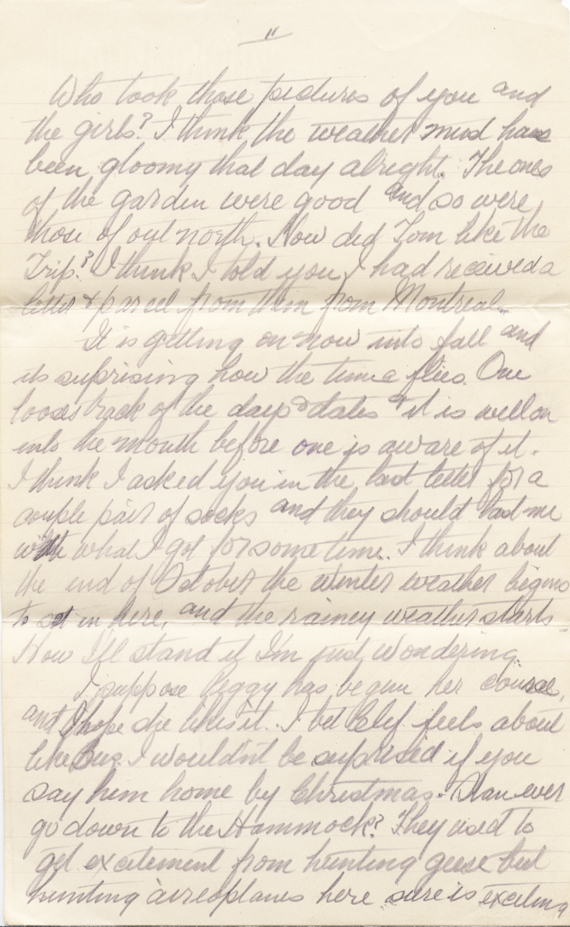 "
Who took those pictures of you and
the girls? I think the weather must have
been gloomy that day alright. The ones
of the garden were good and so were
those of out north. How did Tom like the
Trip? I think I told you I had received a
letter & parcel from them from Montreal.
It is getting on now into fall and
its suprising how the time flies. One
looses track of the days & dates & it is well on
into the month before one is aware of it.
I think I asked you in the last letter for a
couple pair of socks and they should last me
with what I got for some time. I think about
the end of October the winter weather begins
to set in here, and the rainey weather starts
How I'll stand it I'm just wondering.
I suppose Peggy has begun her course,
and I hope she likes it. I bet Clef feels about
like Bus. I wouldn't be suprised if you
say him home by Christmas. Stan ever
go down to the Hammock? They used to
get excitement from hunting geese but
hunting aireoplanes here sure is exciting